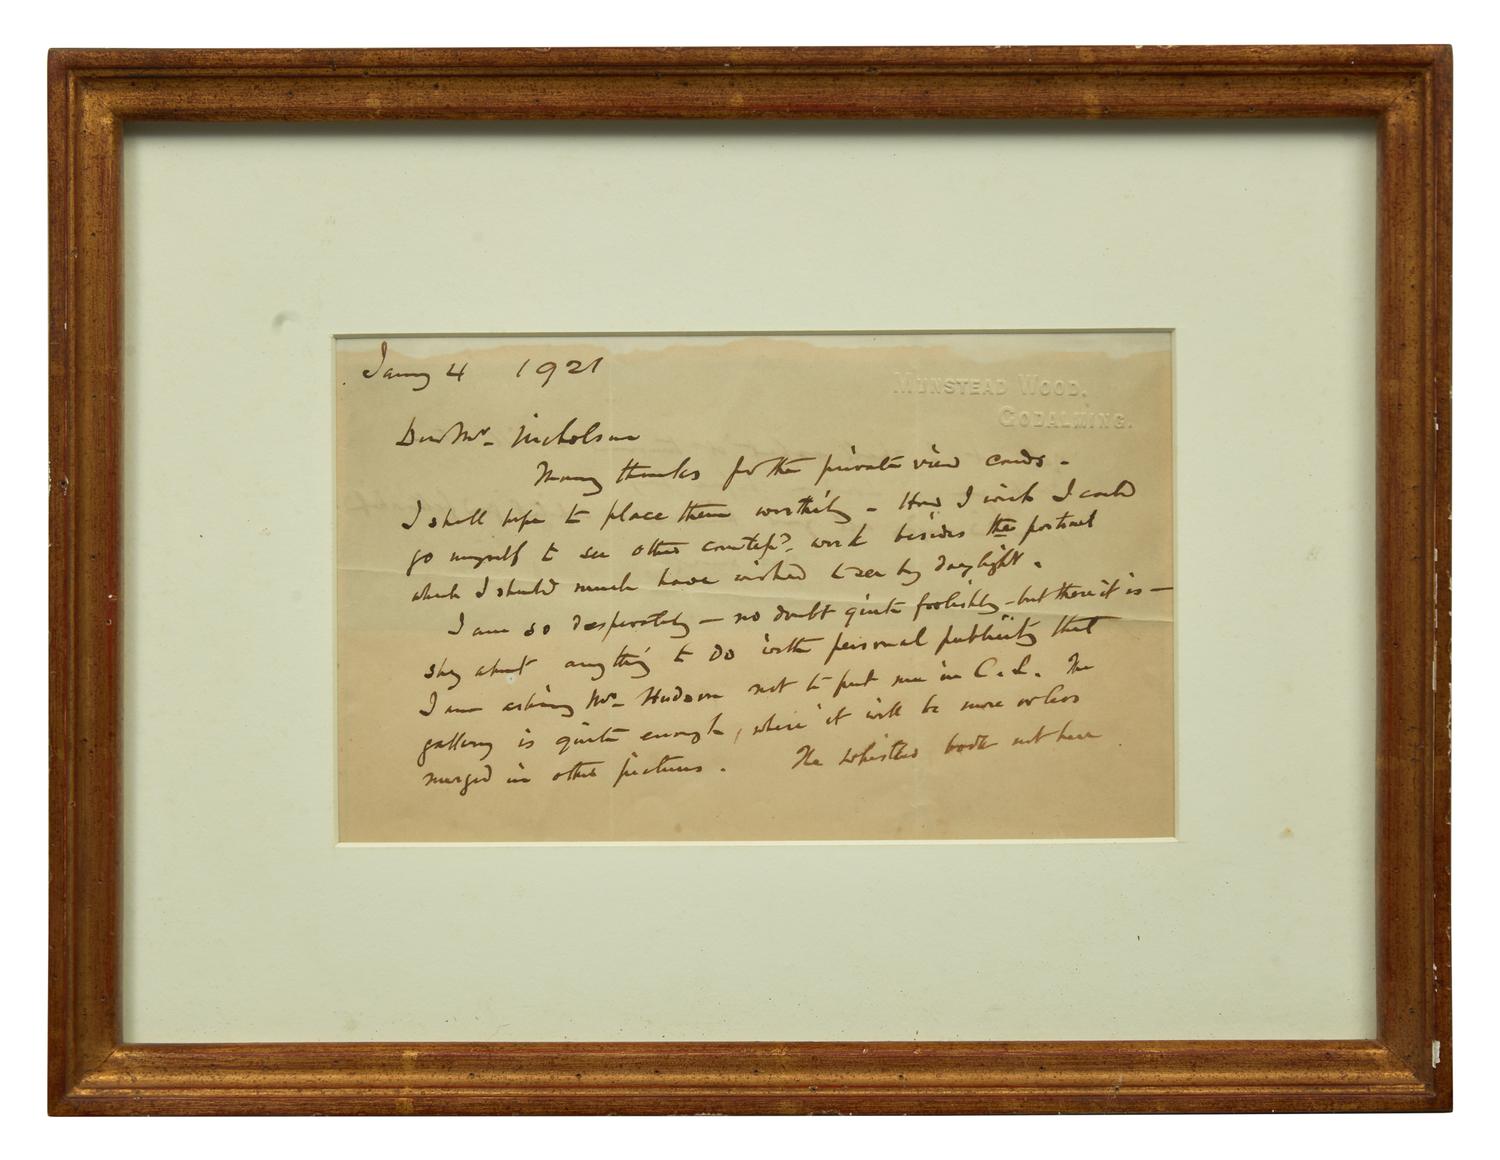 Jany 4 1921
MUNSTEAD WOOD.
GODALMING.
Dear Mr. Nicholson
Many thanks for the private view cards.
I shall hope to place them worthily. How I wish I could
go myself to see other work besides the portrait
which I should much have wished to see by daylight.
I am so desperately — no doubt quite foolishly — but there it is —
shy about anything to do with personal publicity that
I am asking Mr. Hudson not to put me in C.L. The
gallery is quite enough, where it will be more or less
merged in other pictures. The Whistler book not here